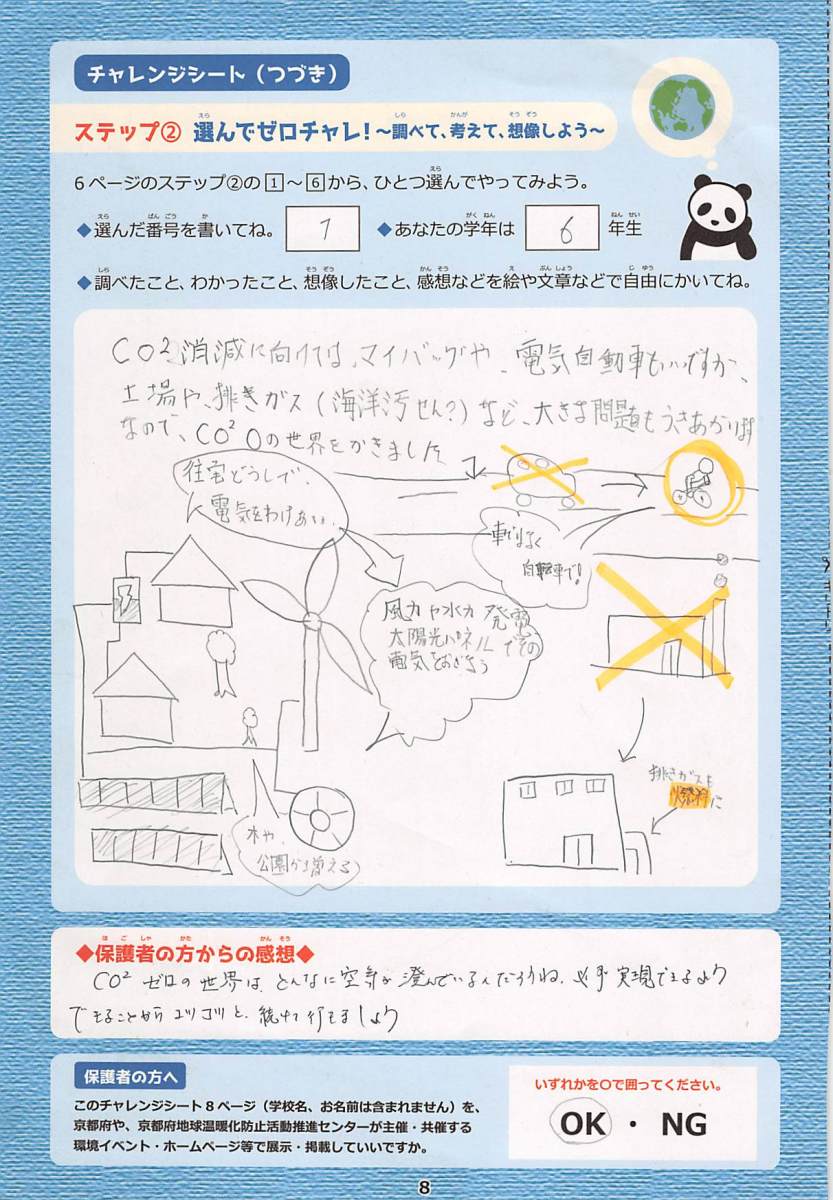 チャレンジシート（つづき）
ステップ② 選んでゼロチャレ！～調べて、考えて、想像しよう～
6ページのステップ②の1～6から、ひとつ選んでやってみよう。
◆選んだ番号を書いてね。 1 ◆あなたの学年は 6 年生
◆調べたこと、わかったこと、想像したこと、感想などを絵や文章などで自由にかいてね。
CO²消減に向けては、マイバッグや、電気自動車もいいですが、
工場や、排きガス(海洋汚せん?)など、大きな問題もうきあがります
なので、CO²0の世界をかきました
住宅どうしで、
電気をわけあい
車ではなく
自転車で!
風力や水力発電
太陽光パネルでその
電気をおぎなう
排きガスも
燃料に
木や、
公園が増える
◆保護者の方からの感想◆
CO²ゼロの世界は、どんなに空気が澄んでいるんだろうね。必ず実現できるよう
できることからコツコツと、続けて行きましょう
保護者の方へ
このチャレンジシート8ページ（学校名、お名前は含まれません）を、
京都府や、京都府地球温暖化防止活動推進センターが主催・共催する
環境イベント・ホームページ等で展示・掲載していいですか。
いずれかを○で囲ってください。
OK ・ NG
8